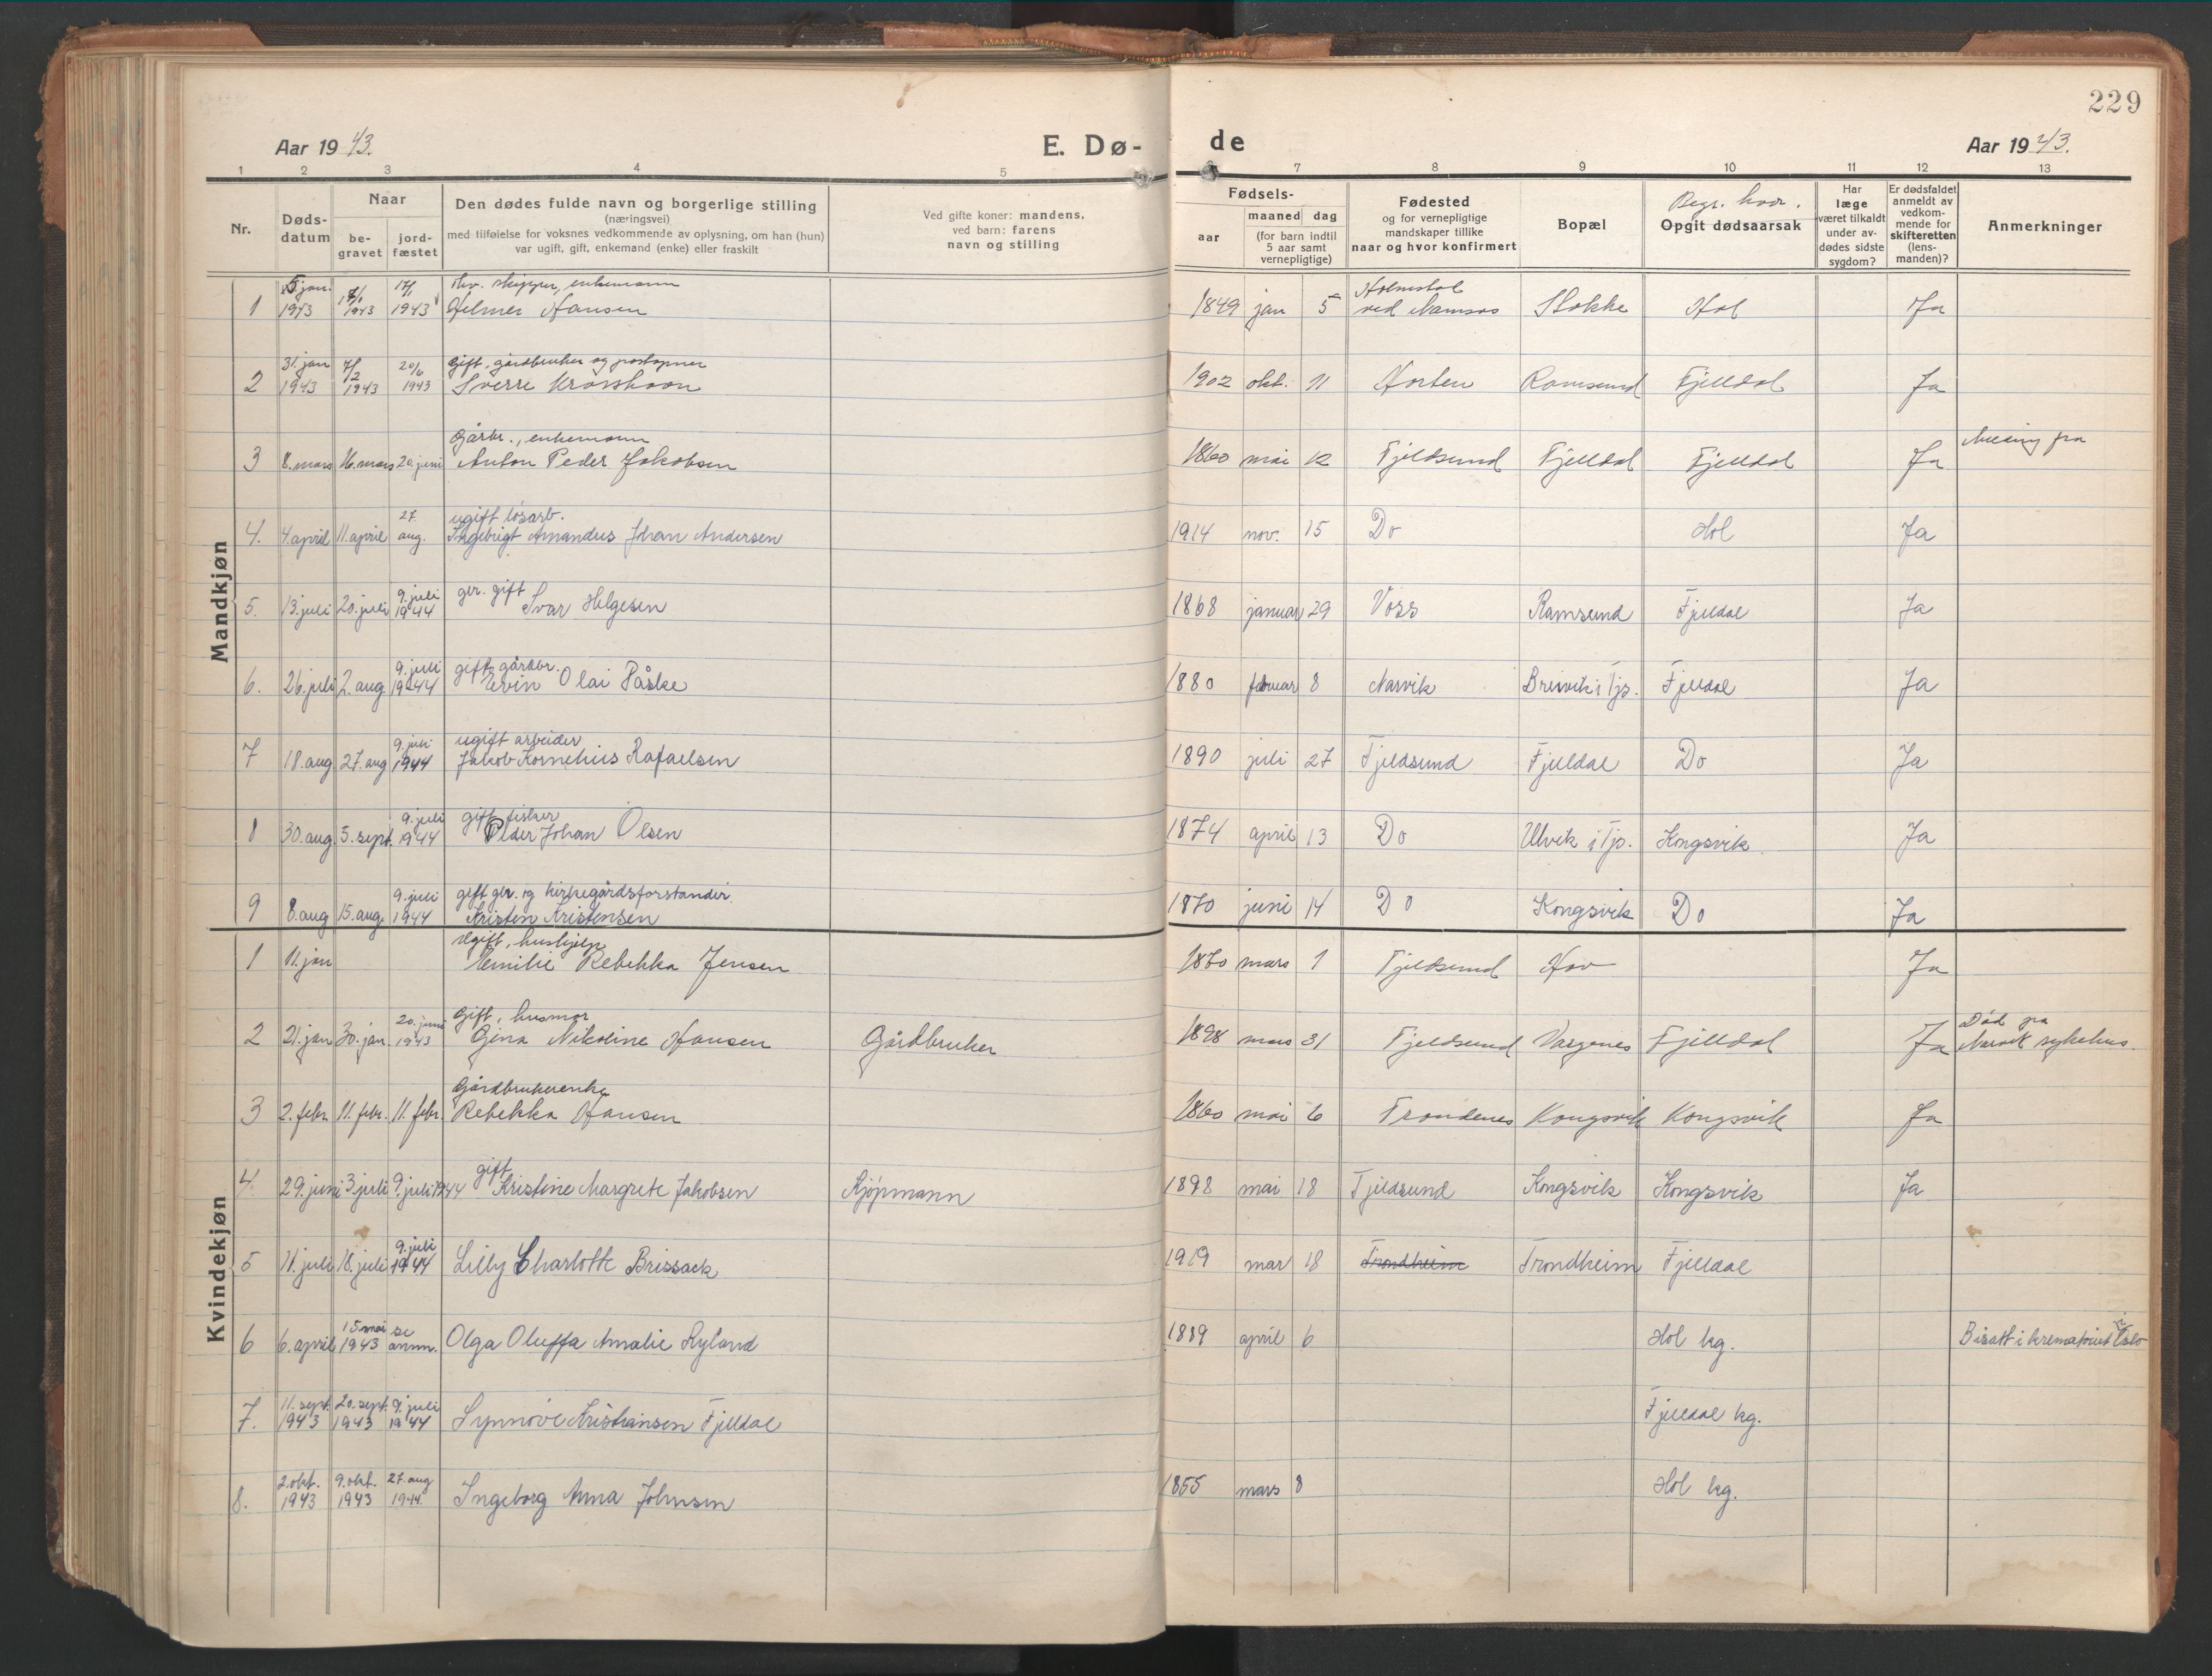 229
Aar 19 43.
E. Dø-
de
Aar 19 43.
1 2 3 4 5 7 8 9 10 11 12 13
Nr.
Døds-
datum
Naar
be-
gravet
jord-
fæstet
Den dødes fulde navn og borgerlige stilling
(næringsvei)
med tilføielse for voksnes vedkommende av oplysning, om han (hun)
var ugift, gift, enkemand (enke) eller fraskilt
Ved gifte koner: mandens,
ved barn: farens
navn og stilling
Fødsels-
aar
maaned dag
(for barn indtil
5 aar samt
vernepligtige)
Fødested
og for vernepligtige
mandskaper tillike
naar og hvor konfirmert
Bopæl
Begr. hvor.
Opgit dødsaarsak
Har
læge
været tilkaldt
under av-
dødes sidste
sygdom?
Er dødsfaldet
anmeldt av
vedkom-
mende for
skifteretten
(lens-
manden)?
Anmerkninger
Mandkjøn
5 jan. 17/1 skipper, enkemann
1 1943 1943 1943 Hilmer Hansen 1849 jan 5 ved Namsos Stokke Hol Ja
31. jan 7/2 20/6 Gift, gårdbruker og postopner
2 1943 1943 1943 Sverre Krosshavn 1902 okt. 11 Horten Ramsund Fjelldal Ja
Gårbr., enkemann
3 8. mars 16. mars 20. juni Anton Peder Jakobsen 1860 mai 12 Fjeldsund Fjelldal Fjelldal Ja
27. ugift løsarb.
4. 4. april 11. april aug. Ingebrigt Amandus Johan Andersen 1914 nov. 15 Do Hol Ja
9. juli gbr. gift
5. 13. juli 20. juli 1944 Ivar Helgesen 1868 januar 29 Voss Ramsund Fjelldal Ja
9. juli gift gårdbr.
6. 26. juli 2. aug. 1944 Edvin Olai Påske 1880 februar 8 Narvik Breivik i Tjs. Fjelldal Ja
9. juli ugift arbeider
7 18. aug 27. aug 1944 Jakob Kornelius Rafaelsen 1890 juli 27 Tjeldsund Fjelldal Do Ja
9. juli gift fisker
8 30. aug. 5. sept. 1944 Peder Johan Olsen 1874 april 13 Do Ulvik i Tjs. Kongsvik Ja
9. juli gift gbr. og kirkegårdsforstander
9 8. aug 15. aug. 1944 Kristen Kristensen 1870 juni 14 Do Kongsvik Do Ja
Kvindekjøn
Ugift, hushjelp
1 11. jan Emilie Rebekka Jensen 1870 mars 1 Tjeldsund Hov Ja
20. juni Gift, husmor Død på
2 21. jan 30. jan. 1943 Gina Nikoline Hansen Gårdbruker 1898 mars 31 Tjeldsund Vargenes Fjelldal Ja Narvik sykehus.
Gårdbrukerenke
3 2. febr. 11. febr. 11. febr. Rebekka Hansen 1860 mai 6 Trondenes Kongsvik Kongsvik Ja
gift
4. 29. juni 3. juli 9. juli 1944 Kristine Margrete Jakobsen Kjøpmann 1898 mai 18 Tjeldsund Kongsvik Kongsvik Ja
9. juli
5 11. juli 18. juli 1944 Lilly Charlotte Brissack 1919 mar 18 Trondheim Trondheim Fjelldal
15 mai se
6 6. april 1943 anm. Olga Oluffa Amalie Ryland 1889 april 6 Hol kg. Bisatt i krematoriet i Oslo
11. sept. 20. sept. 9. juli
7. 1943 1943 1944 Synnøve Kristiansen Fjelldal Fjelldal kg.
2. okt. 9. okt. 27. aug
8. 1943 1943 1944. Ingeborg Anna Johnsen 1855 mars 8 Hol kg.